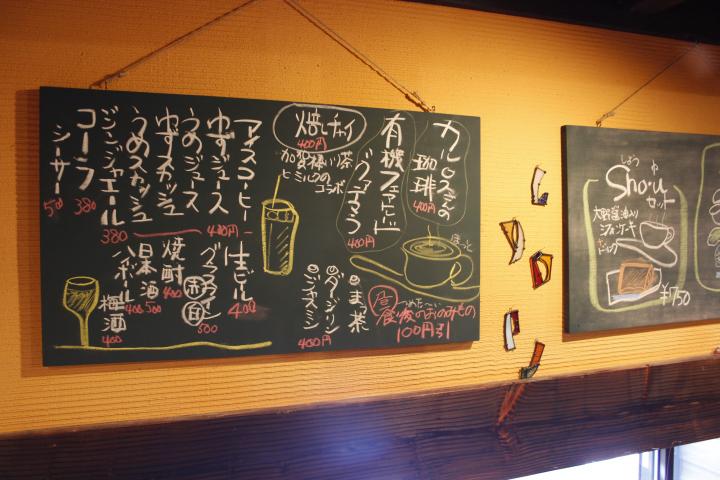 カルロスさんの
珈琲
400円
有機フェアトレード
グァテマラ
400円
焙じチャイ
400円
加賀棒ほうじ茶
とミルクの
コラボ
ほっと
アイスコーヒー
ゆずジュース
うめジュース
ゆずスカッシュ
うめスカッシュ
400円
ジンジャエール
380
コーラ
380
シーサー
500
生ビール
400
グラスワイン
赤
白
500
焼酎
400
日本酒
500
ハイボール
400
梅酒
400
まっ茶
ダージリン
ジャスミン
400円
昼
食後のおのみもの
100円引
しょう ゆ
Sho-u
セット
大野醤油入り
シフォンケーキ
¥750